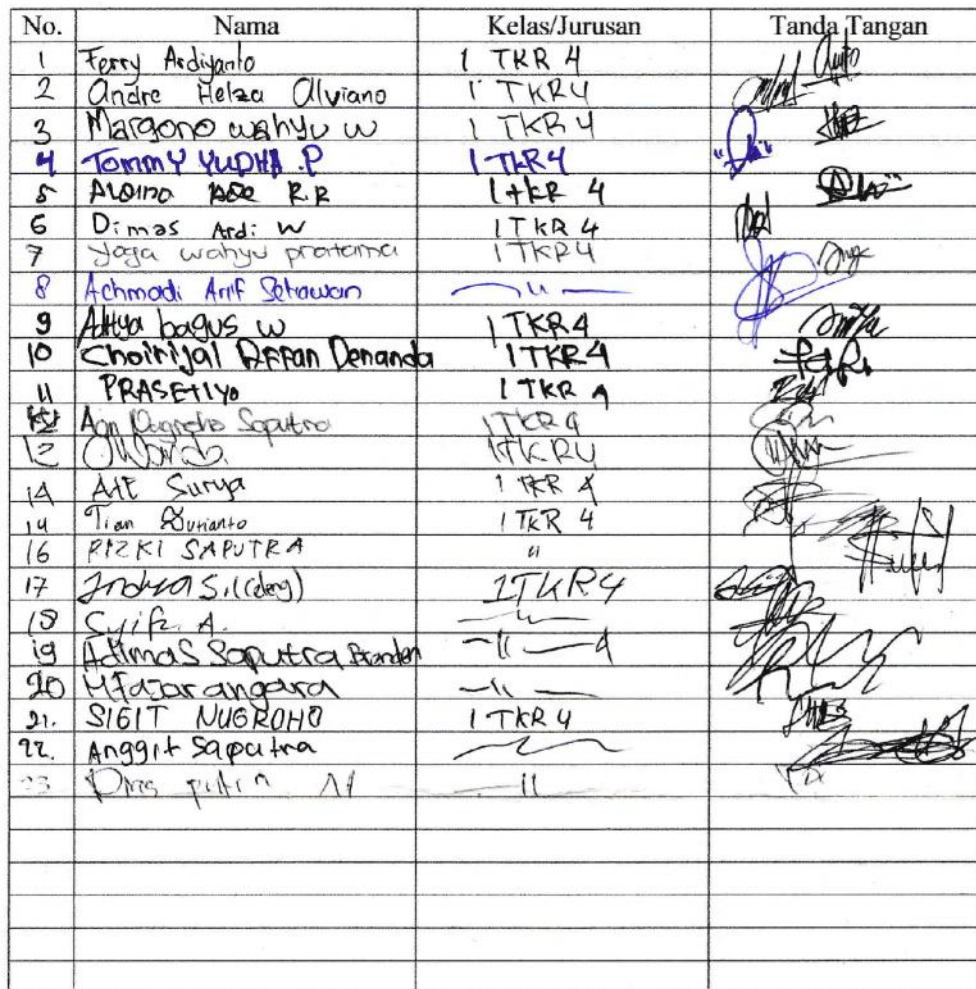 No. Nama Kelas/Jurusan Tanda Tangan
1 Ferry Ardiyanto 1 TKR 4
2 Andre Helza Alviano 1 TKR4
3 Margono wahyu w 1 TKR 4
4 Tommy YUDHA .P 1 TKR4
5 R.R 1 TKR 4
6 Dimas Ardi W 1 TKR 4
7 Yoga wahyu pratama 1 TKR4
8 Achmadi Arif Setiawan — 11 —
9 Aditya bagus w 1 TKR4
10 Choirijal Affan Denanda 1 TKR4
11 PRASETIYO 1 TKR 4
Saputro 1 TKR 4
13 1 TKR4
14 Surya 1 TKR 4
14 Tian 1 TKR 4
16 RIZKI SAPUTRA "
17 1TKR4
18 A. — 11 —
19 Adimas Saputra — 11 — 4
20 M Fajar angara — 11 —
21. SIGIT NUGROHO 1 TKR 4
22. Anggit Saputra
23 — 11